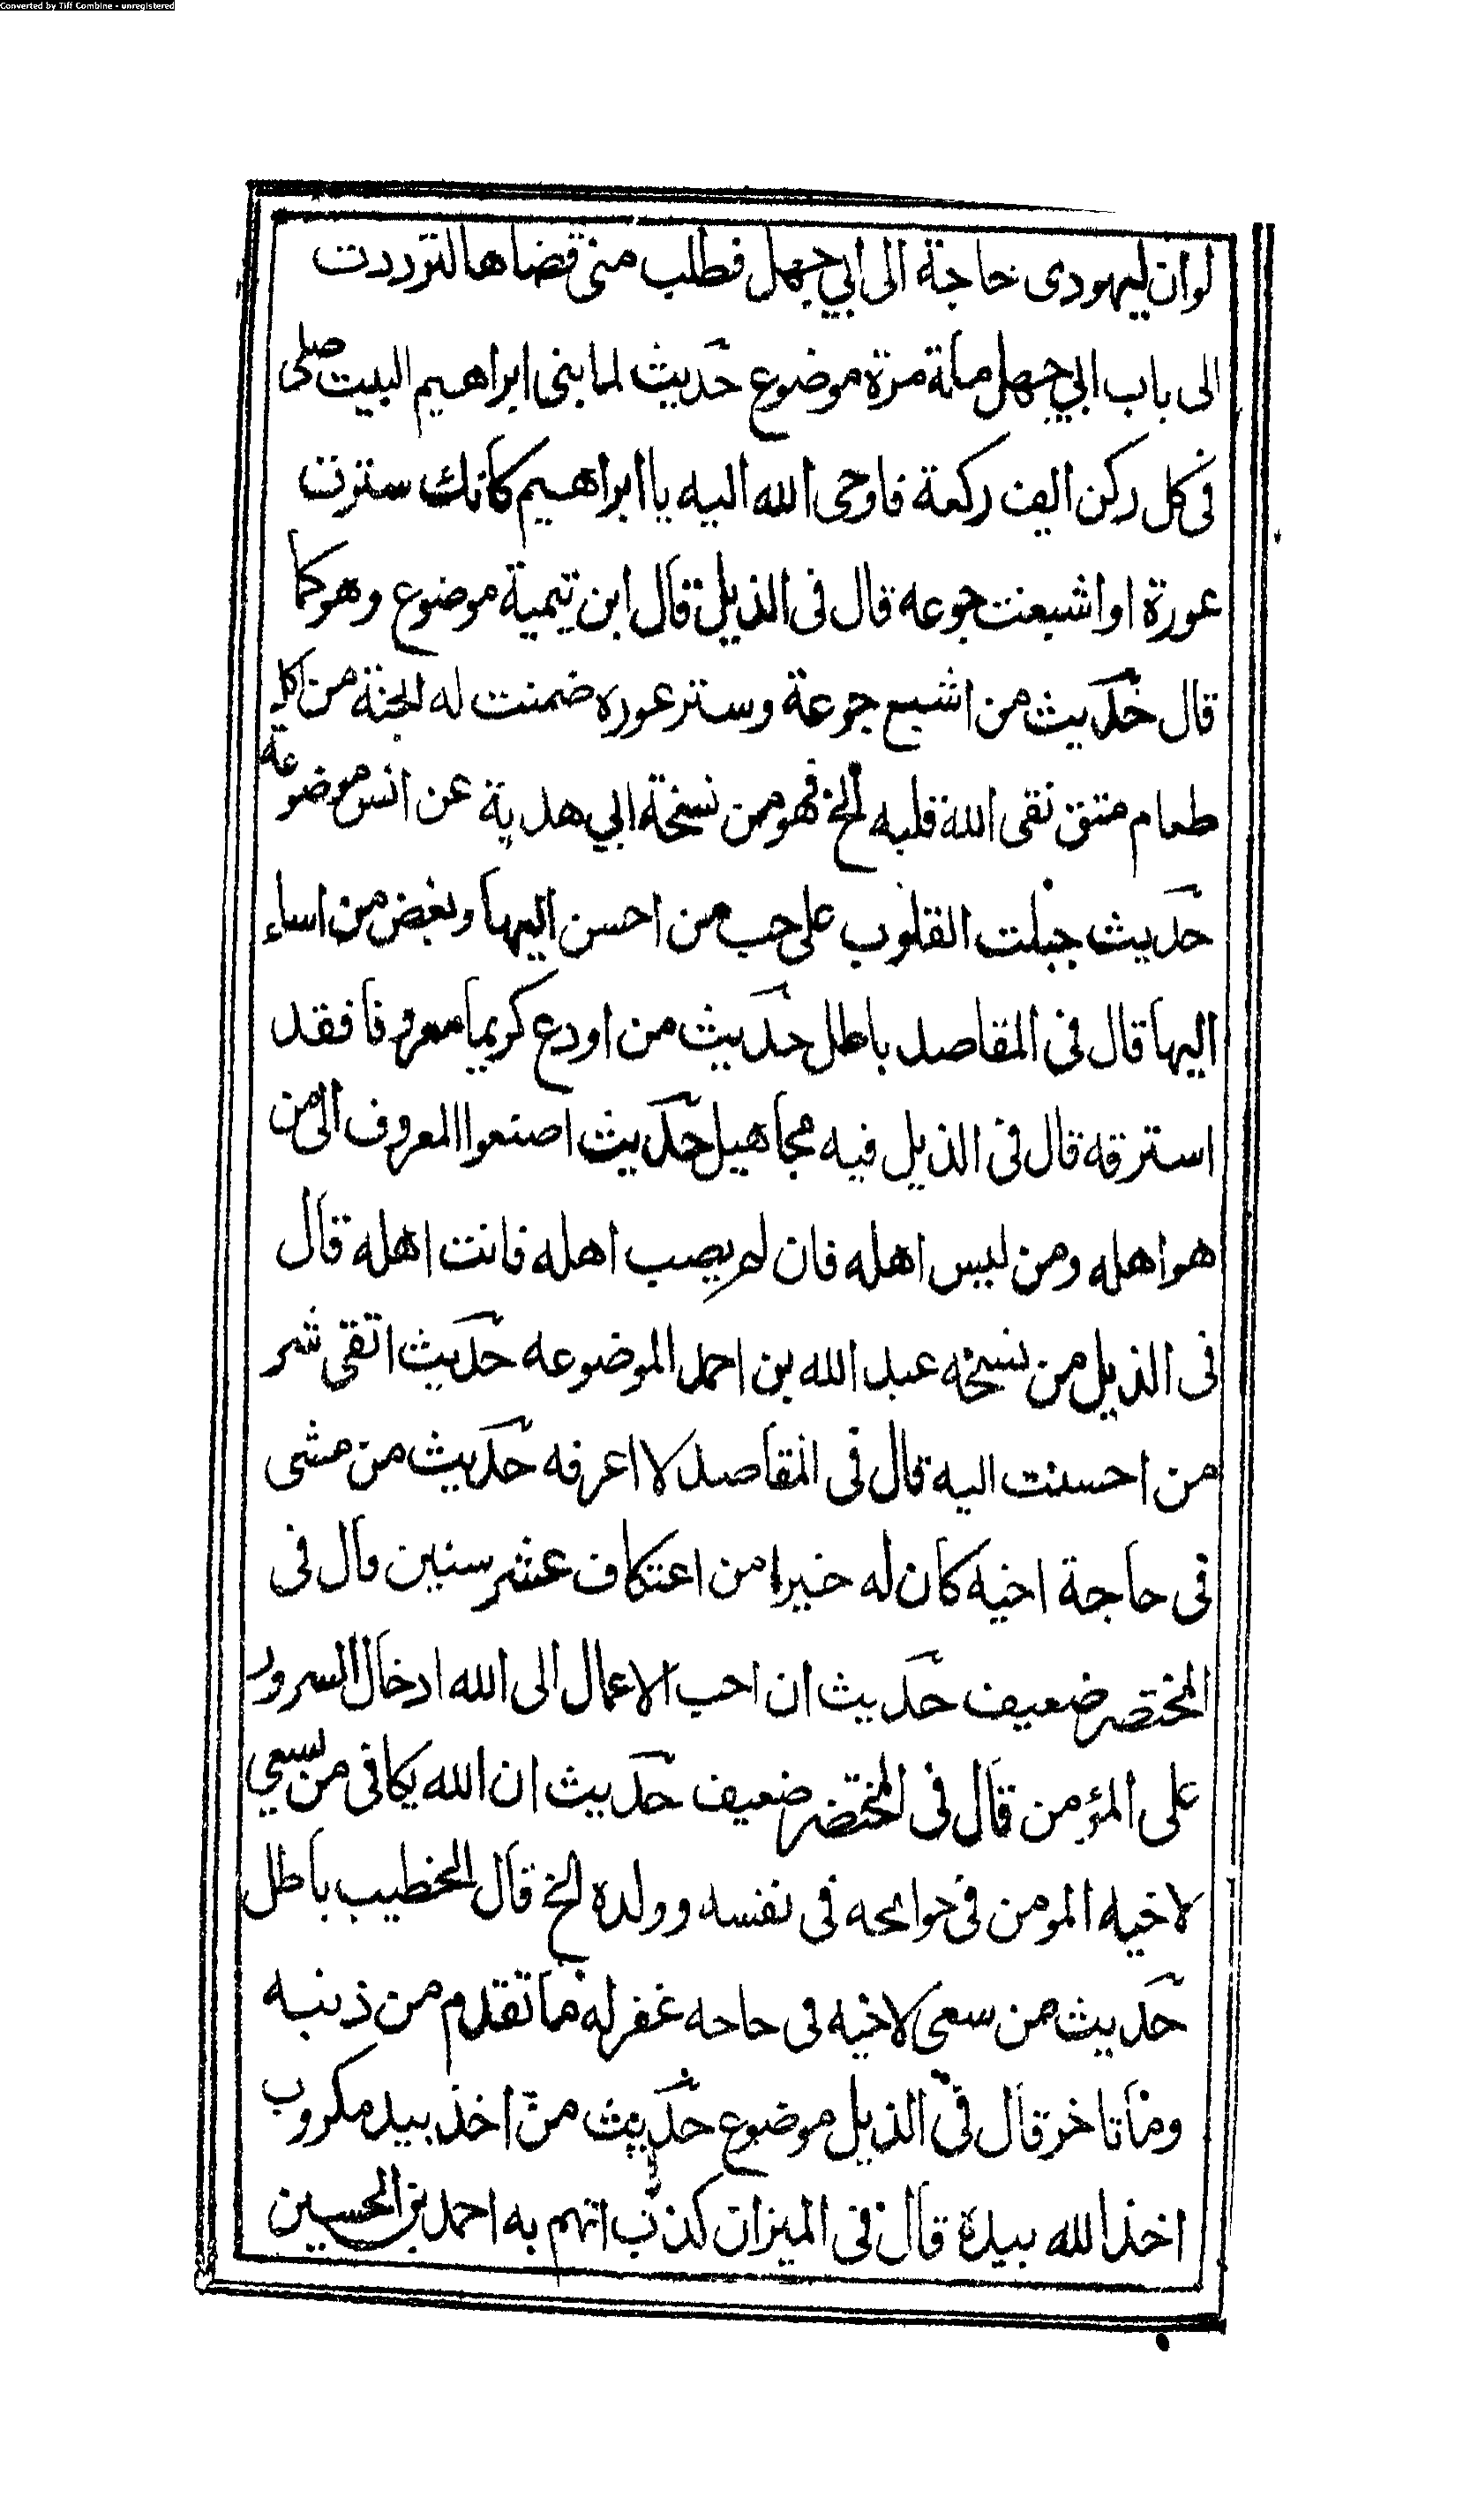 Converted by Tiff Combine - unregistered
لوان ليهودى حاجة الى ابي جهل فطلب منى قضاها لترددت
الى باب ابي جهل مائة مرة موضوع حديث لما بنى ابراهيم البيت صلى
فى كل ركن الف ركعة فاوحى الله اليه يا ابراهيم كانك سترت
عورة او اشبعت جوعه قال فى الذيل قال ابن تيمية موضوع وهو كما
قال حديث من اشبع جوعة وستر عوره ضمنت له الجنة من اكل
طعام متق نقى الله قلبه الخ فهو من نسخة ابي هدبة عن انس موضوعة
حديث جبلت القلوب على حب من احسن اليها وبغض من اساء
اليها قال فى المقاصد باطل حديث من اودع كريما معروفا فقد
استرقه قال فى الذيل فيه مجاهيل حديث اصنعوا المعروف الى من
هو اهله ومن ليس اهله فان لم يصب اهله فانت اهله قال
فى الذيل من نسخه عبد الله بن احمد الموضوعه حديث اتقى شر
من احسنت اليه قال فى المقاصد لا اعرفه حديث من مشى
فى حاجة اخيه كان له خيرا من اعتكاف عشر سنين قال فى
المختصر ضعيف حديث ان احب الاعمال الى الله ادخال السرور
على المؤمن قال فى المختصر ضعيف حديث ان الله يكافى من يسعي
لاخيه المومن فى حوائجه فى نفسه وولده الخ قال الخطيب باطل
حديث من سعى لاخيه فى حاحه غفر له ما تقدم من ذنبه
وما تاخر قال فى الذيل موضوع حديث من اخذ بيد مكروب
اخذ الله بيده قال فى الميزان كذب اتهم به احمد بن الحسين